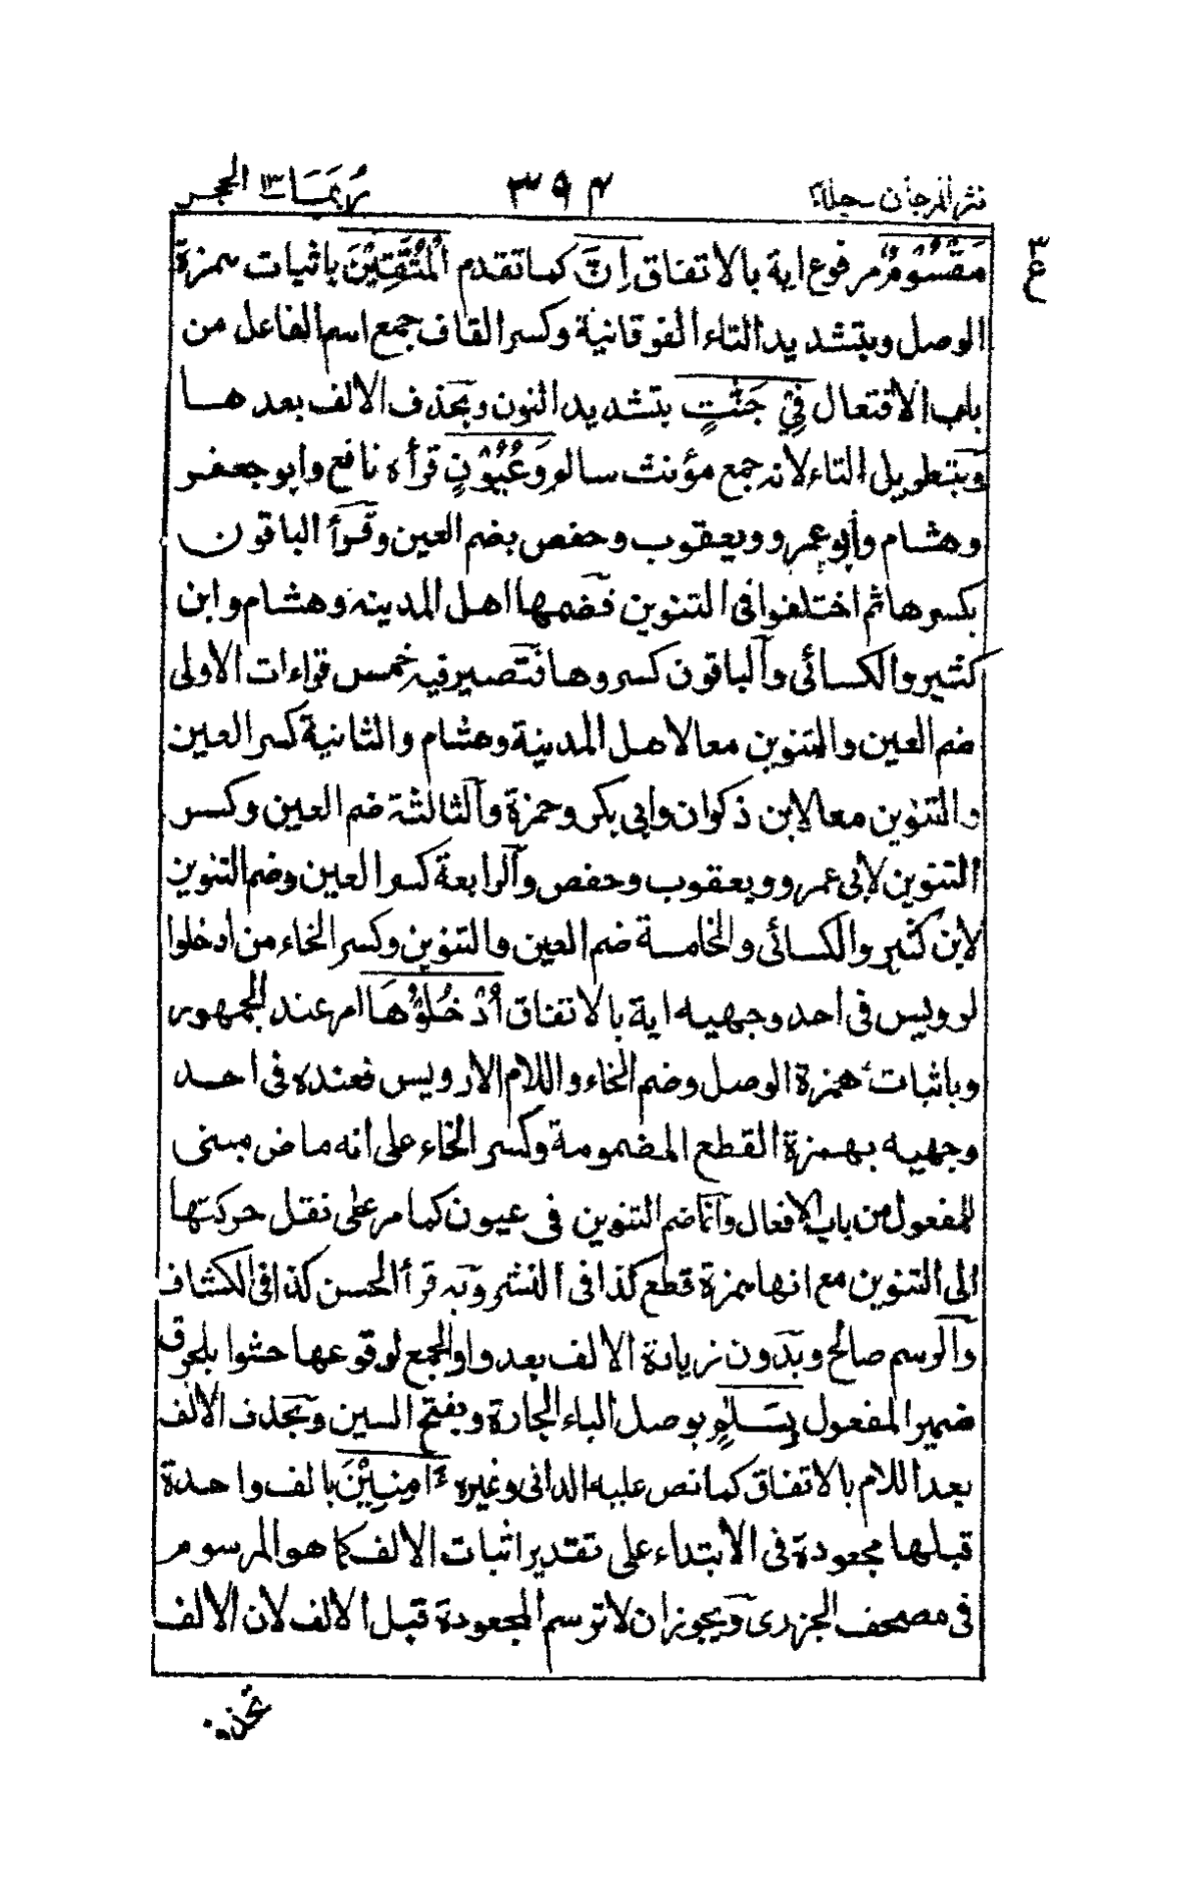 نثر المرجان - جلد
٣٩٤
ربما ١٣ الحجر
ع ٣
مَقْسُوْمٌ مرفوع اية بالاتفاق اِنَّ كما تقدم الْمُتَّقِيْنَ باثبات همزة
الوصل وبتشديد التاء الفوقانية وكسر القاف جمع اسم الفاعل من
باب الافتعال فِيْ جَنّٰتٍ بتشديد النون وبحذف الالف بعدها
وبتطويل التاء لانه جمع مؤنث سالم وَعُيُوْنٍ قرأه نافع وابو جعفر
وهشام وأبو عمرو ويعقوب وحفص بضم العين وقرأ الباقون
بكسرها ثم اختلفوا فى التنوين فضمها اهل المدينة وهشام وابن
كثير والكسائى والباقون كسروها فتصير فيه خمس قراءات الاولى
ضم العين والتنوين معا لاهل المدينة وهشام والثانية كسر العين
والتنوين معا لابن ذكوان وابى بكر وحمزة والثالثة ضم العين وكسر
التنوين لابى عمرو ويعقوب وحفص والرابعة كسر العين وضم التنوين
لابن كثير والكسائى والخامسة ضم العين والتنوين وكسر الخاء من أدخلوا
لرويس فى احد وجهيه اية بالاتفاق اُدْخُلُوْهَا امر عند الجمهور
وباثبات همزة الوصل وضم الخاء واللام الا رويس فعنده فى احد
وجهيه بهمزة القطع المضمومة وكسر الخاء على انه ماض مبنى
للمفعول من باب الافعال وانما ضم التنوين فى عيون كما مر على نقل حركتها
الى التنوين مع انها همزة قطع كذا فى النشر وبه قرأ الحسن كذا فى الكشاف
والرسم صالح وبدون زيادة الالف بعد واو الجمع لوقوعها حشوا بلحوق
ضمير المفعول بِسَلٰمٍ بوصل الباء الجارة وبفتح السين وبحذف الالف
بعد اللام بالاتفاق كما نص عليه الدانى وغيره ءَامِنِيْنَ بالف واحدة
قبلها مجعودة فى الابتداء على تقدير اثبات الالف كما هو المرسوم
فى مصحف الجزرى ويجوز ان لا ترسم المجعودة قبل الالف لان الالف
تحذف